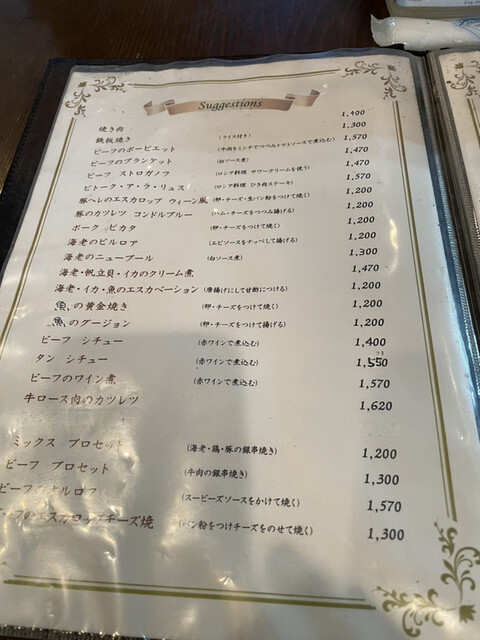 Suggestions
焼き肉 1,400
鉄板焼き (ライス付き) 1,300
ビーフのポーピエット (牛肉をミンチでつつみトマトソースで煮込む) 1,570
ビーフのブランケット (白ソース煮) 1,470
ビーフ ストロガノフ (ロシア料理 サワークリームを使う) 1,470
ビトーク・ア・ラ・リュス (ロシア料理 ひき肉ステーキ) 1,570
豚ヘレのエスカロップ ウィーン風 (卵・チーズ・生パン粉をつけて焼く) 1,200
豚のカツレツ コンドルブルー (ハム・チーズをつつみ揚げる) 1,200
ポーク ピカタ (卵・チーズをつけて焼く) 1,200
海老のビルロア (エビソースをナッペして揚げる) 1,200
海老のニューブール (白ソース煮) 1,300
海老・帆立貝・イカのクリーム煮 1,470
海老・イカ・魚のエスカベーション (唐揚げにして甘酢につける) 1,200
魚の黄金焼き (卵・チーズをつけて焼く) 1,200
魚のグージョン (卵・チーズをつけて揚げる) 1,200
ビーフ シチュー (赤ワインで煮込む) 1,400
タン シチュー (赤ワインで煮込む) 1,550
ビーフのワイン煮 (赤ワインで煮込む) 1,570
牛ロース肉のカツレツ 1,620
ミックス プロセット (海老・鶏・豚の銀串焼き) 1,200
ビーフ プロセット (牛肉の銀串焼き) 1,300
ビーフの ルロフ (スービーズソースをかけて焼く) 1,570
フのエスカロップチーズ焼 (パン粉をつけチーズをのせて焼く) 1,300